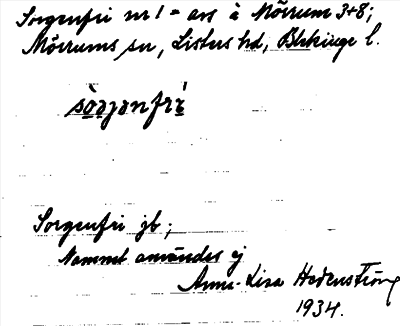 Sorgenfri nr 1 = avs å Mörrum 3+8;
Mörrums sn, Listers hd, Blekinge l.
sòrjənfrí
Sorgenfri jb;
Namnet användes ej
Anna-Lisa Hedenström
1934.